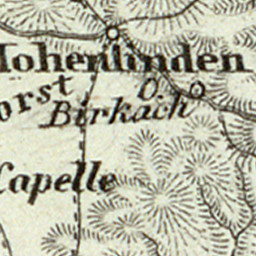 Hohenlinden
orst
O. Birkach
Capelle